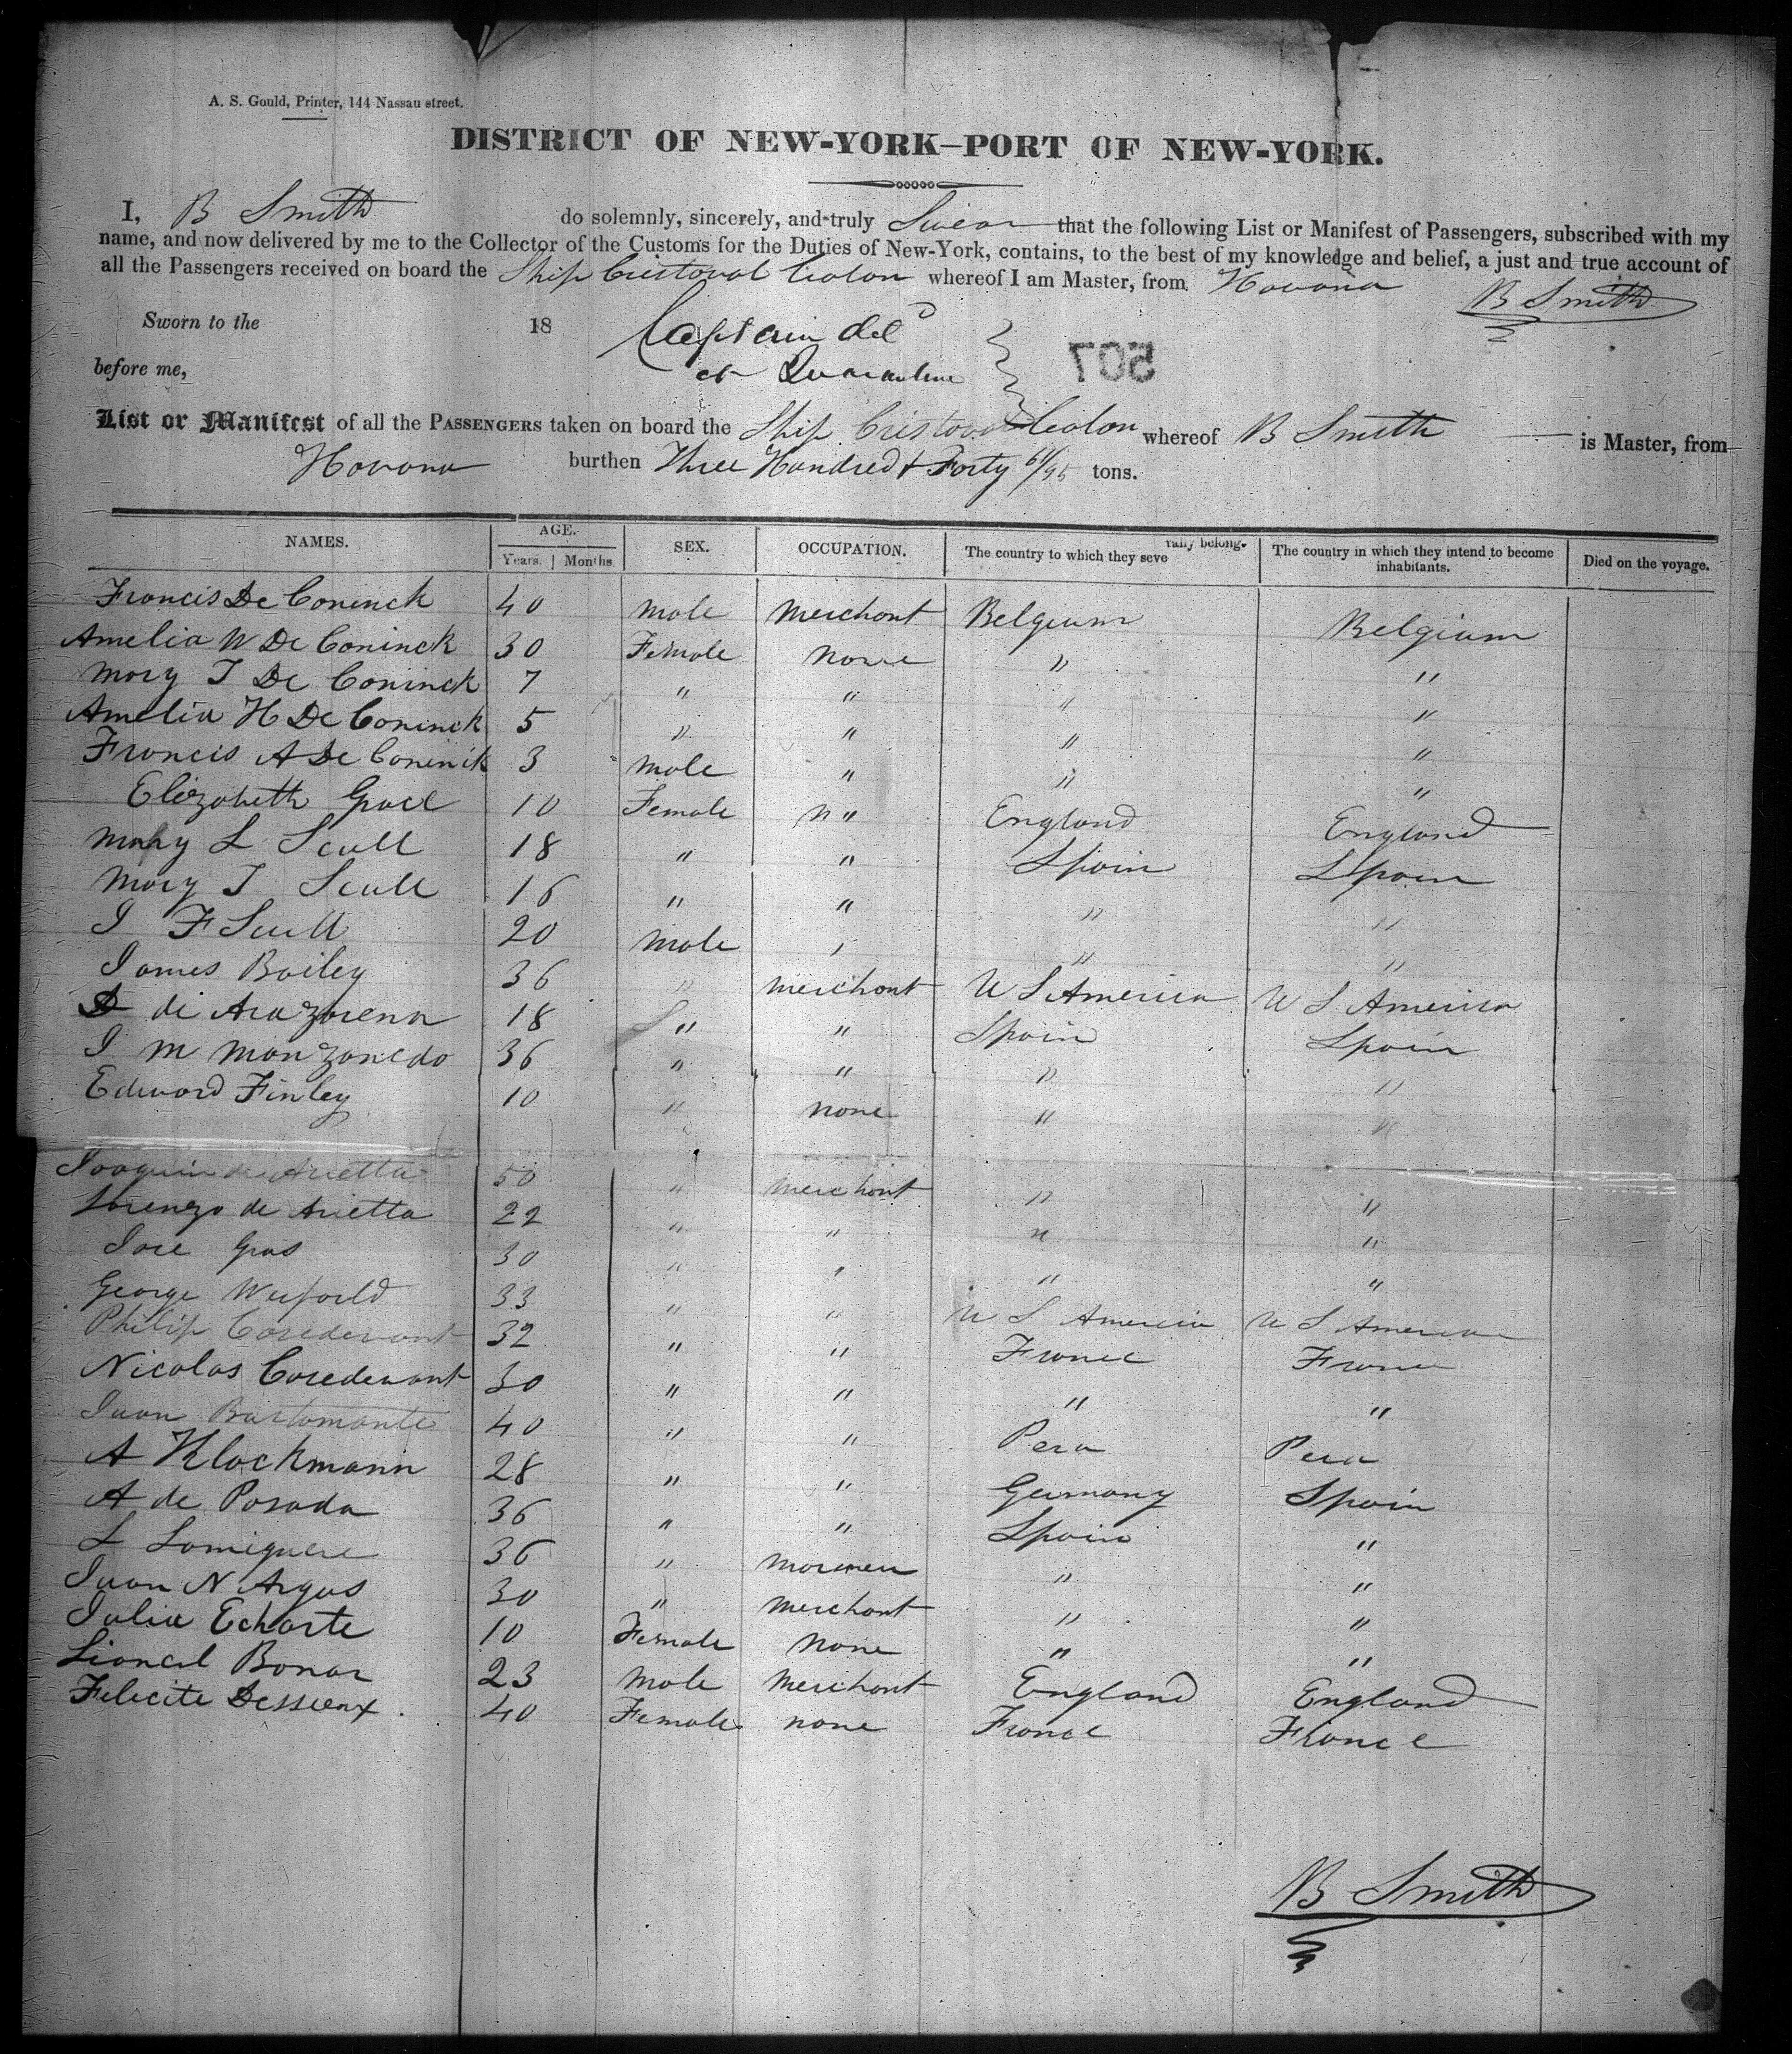 A. S. Gould, Printer, 144 Nassau street.
DISTRICT OF NEW-YORK—PORT OF NEW-YORK.
I, B Smith do solemnly, sincerely, and truly Swear that the following List or Manifest of Passengers, subscribed with my
name, and now delivered by me to the Collector of the Customs for the Duties of New-York, contains, to the best of my knowledge and belief, a just and true account of
all the Passengers received on board the Ship Cristoval Colon whereof I am Master, from Havana
B Smith
Sworn to the 18
Captain del
at Quarantine
before me,
507
List or Manifest of all the PASSENGERS taken on board the Ship Cristoval Colon whereof B Smith is Master, from
Havana burthen Three Hundred & Forty 61/95 tons.
NAMES. AGE. SEX. OCCUPATION. The country to which they severally belong. The country in which they intend to become inhabitants. Died on the voyage.
Years. Months.
Francis De Coninck 40 Male Merchant Belgium Belgium
Amelia W De Coninck 30 Female None " "
Mary J De Coninck 7 " " " "
Amelia H De Coninck 5 " " " "
Francis A De Coninck 3 Male " " "
Elizabeth Grace 10 Female " England England
Mary L Scull 18 " " Spain Spain
Mary J Scull 16 " " " "
J F Scull 20 Male " " "
James Bailey 36 " Merchant U S America U S America
de Arazorena 18 " " Spain Spain
J M Manzanedo 36 " " " "
Edward Finley 10 " none " "
Joaquin de Arietta 50 " Merchant " "
Lorenzo de Arietta 22 " " " "
Jose Gras 30 " " " "
George 33 " " U S America U S America
Philip Casedevant 32 " " France France
Nicolas Casedevant 30 " " " "
Juan Bustamante 40 " " Peru Peru
A Klockmann 28 " " Germany Spain
A de Posada 36 " " Spain "
L Lamiguere 36 " " "
Juan N Argus 30 " Merchant " "
Julia Echarte 10 Female None " "
Lionel Bonar 23 Male Merchant England England
Felicite Dessieux 40 Female none France France
B Smith